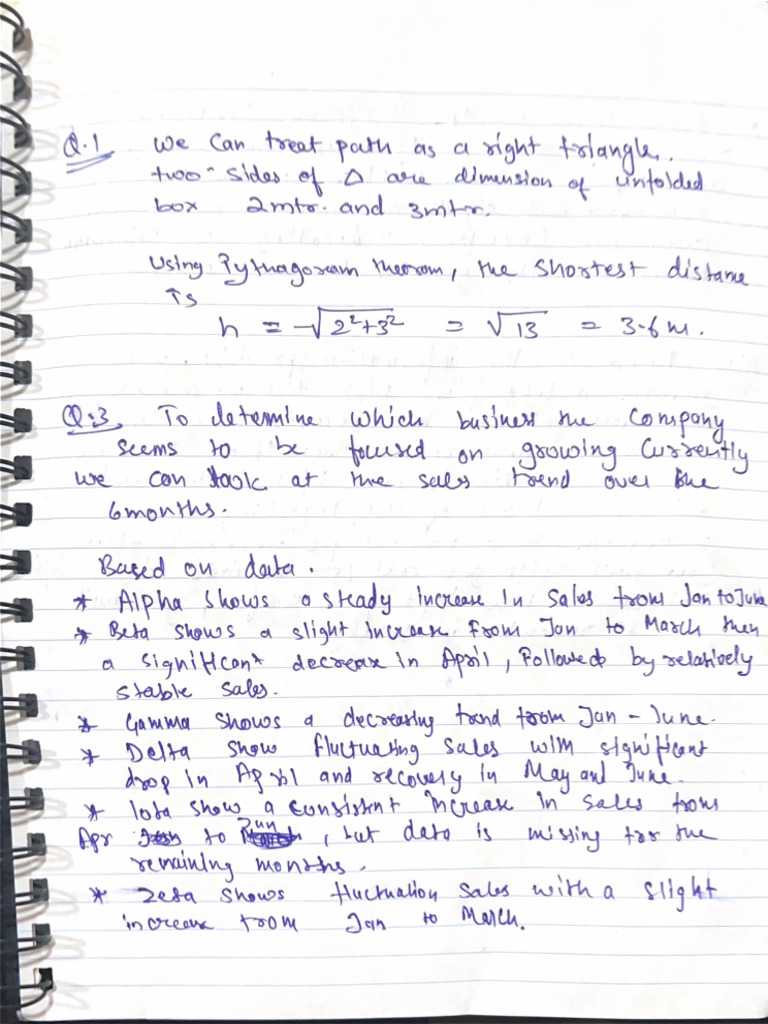 Q.1 We Can treat path as a right triangle.
two sides of △ are dimension of unfolded
box 2mtr. and 3mtr.
Using Pythagoream theorom, the shortest distance
is
h = √2²+3² = √13 = 3.6 m.
Q.3 To determine which business the company
seems to be focused on growing currently
we can look at the sales trend over the
6 months.
Based on data.
* Alpha shows a steady increase in sales from Jan to June
* Beta shows a slight increase from Jan to March then
a significant decrease in April, followed by relatively
stable sales.
* Gamma shows a decreasing trend from Jan - June.
* Delta show fluctuating sales with significant
drop in April and recovery in May and June.
* Iota show a consistent increase in sales from
Apr to Jun, but data is missing for the
remaining months.
* Zeta shows fluctuation sales with a slight
increase from Jan to March.